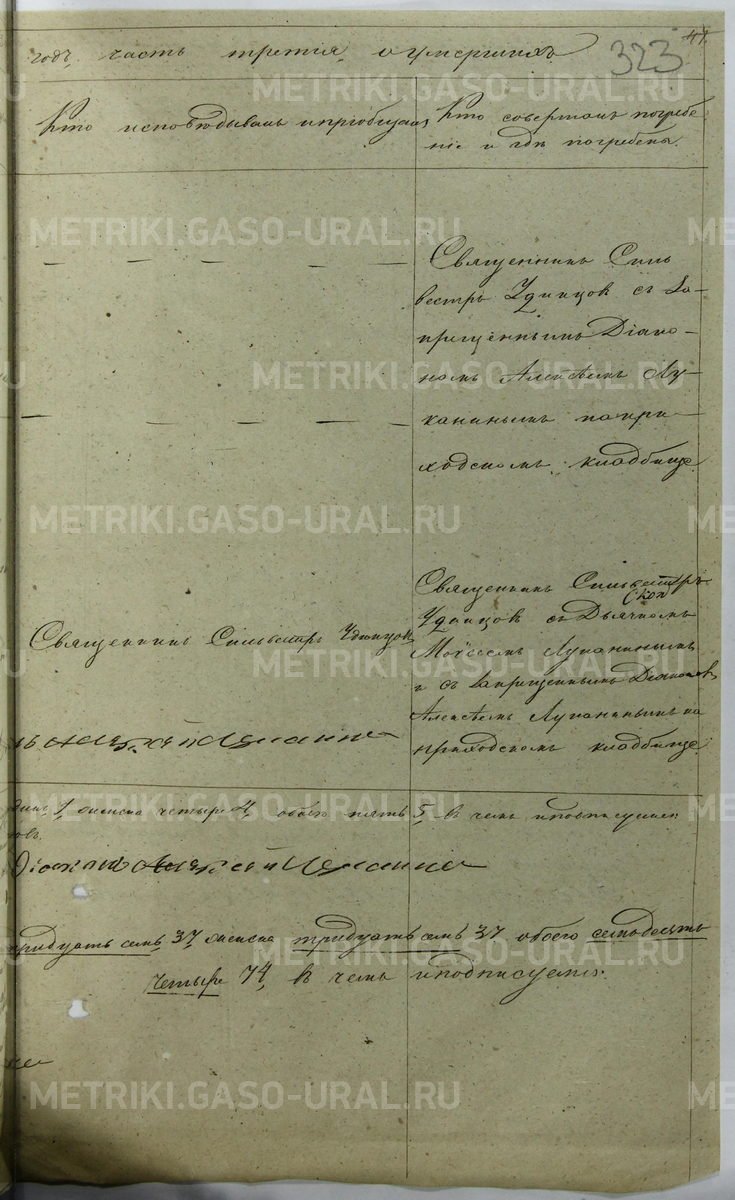 41
323
годъ, часть третія, о умершихъ
Кто исповѣдывалъ и пріобщалъ
Кто совершалъ погребе-
ніе и гдѣ погребены.
Священникъ Силь
вестръ Удинцов съ За-
прещеннымъ Діако-
номъ Алексѣемъ Лу-
канинымъ на при-
ходскомъ кладбище
Священникъ Сильвестръ Удинцов
Священникъ Сильвестръ
Удинцов съ Дьячкомъ
Моѵсеемъ Луканинымъ
и съ Запрещеннымъ Діакономъ
Алексѣемъ Луканинымъ на
приходскомъ кладбище
1, женска четыре 4, обоего пять 5, в чемъ и подписуемся
Діаконъ Алексей Луканин
тридцать семь 37, женска тридцать семь 37 обоего семьдесятъ
четыре 74, в чемъ и подписуемся.
METRIKI.GASO-URAL.RU